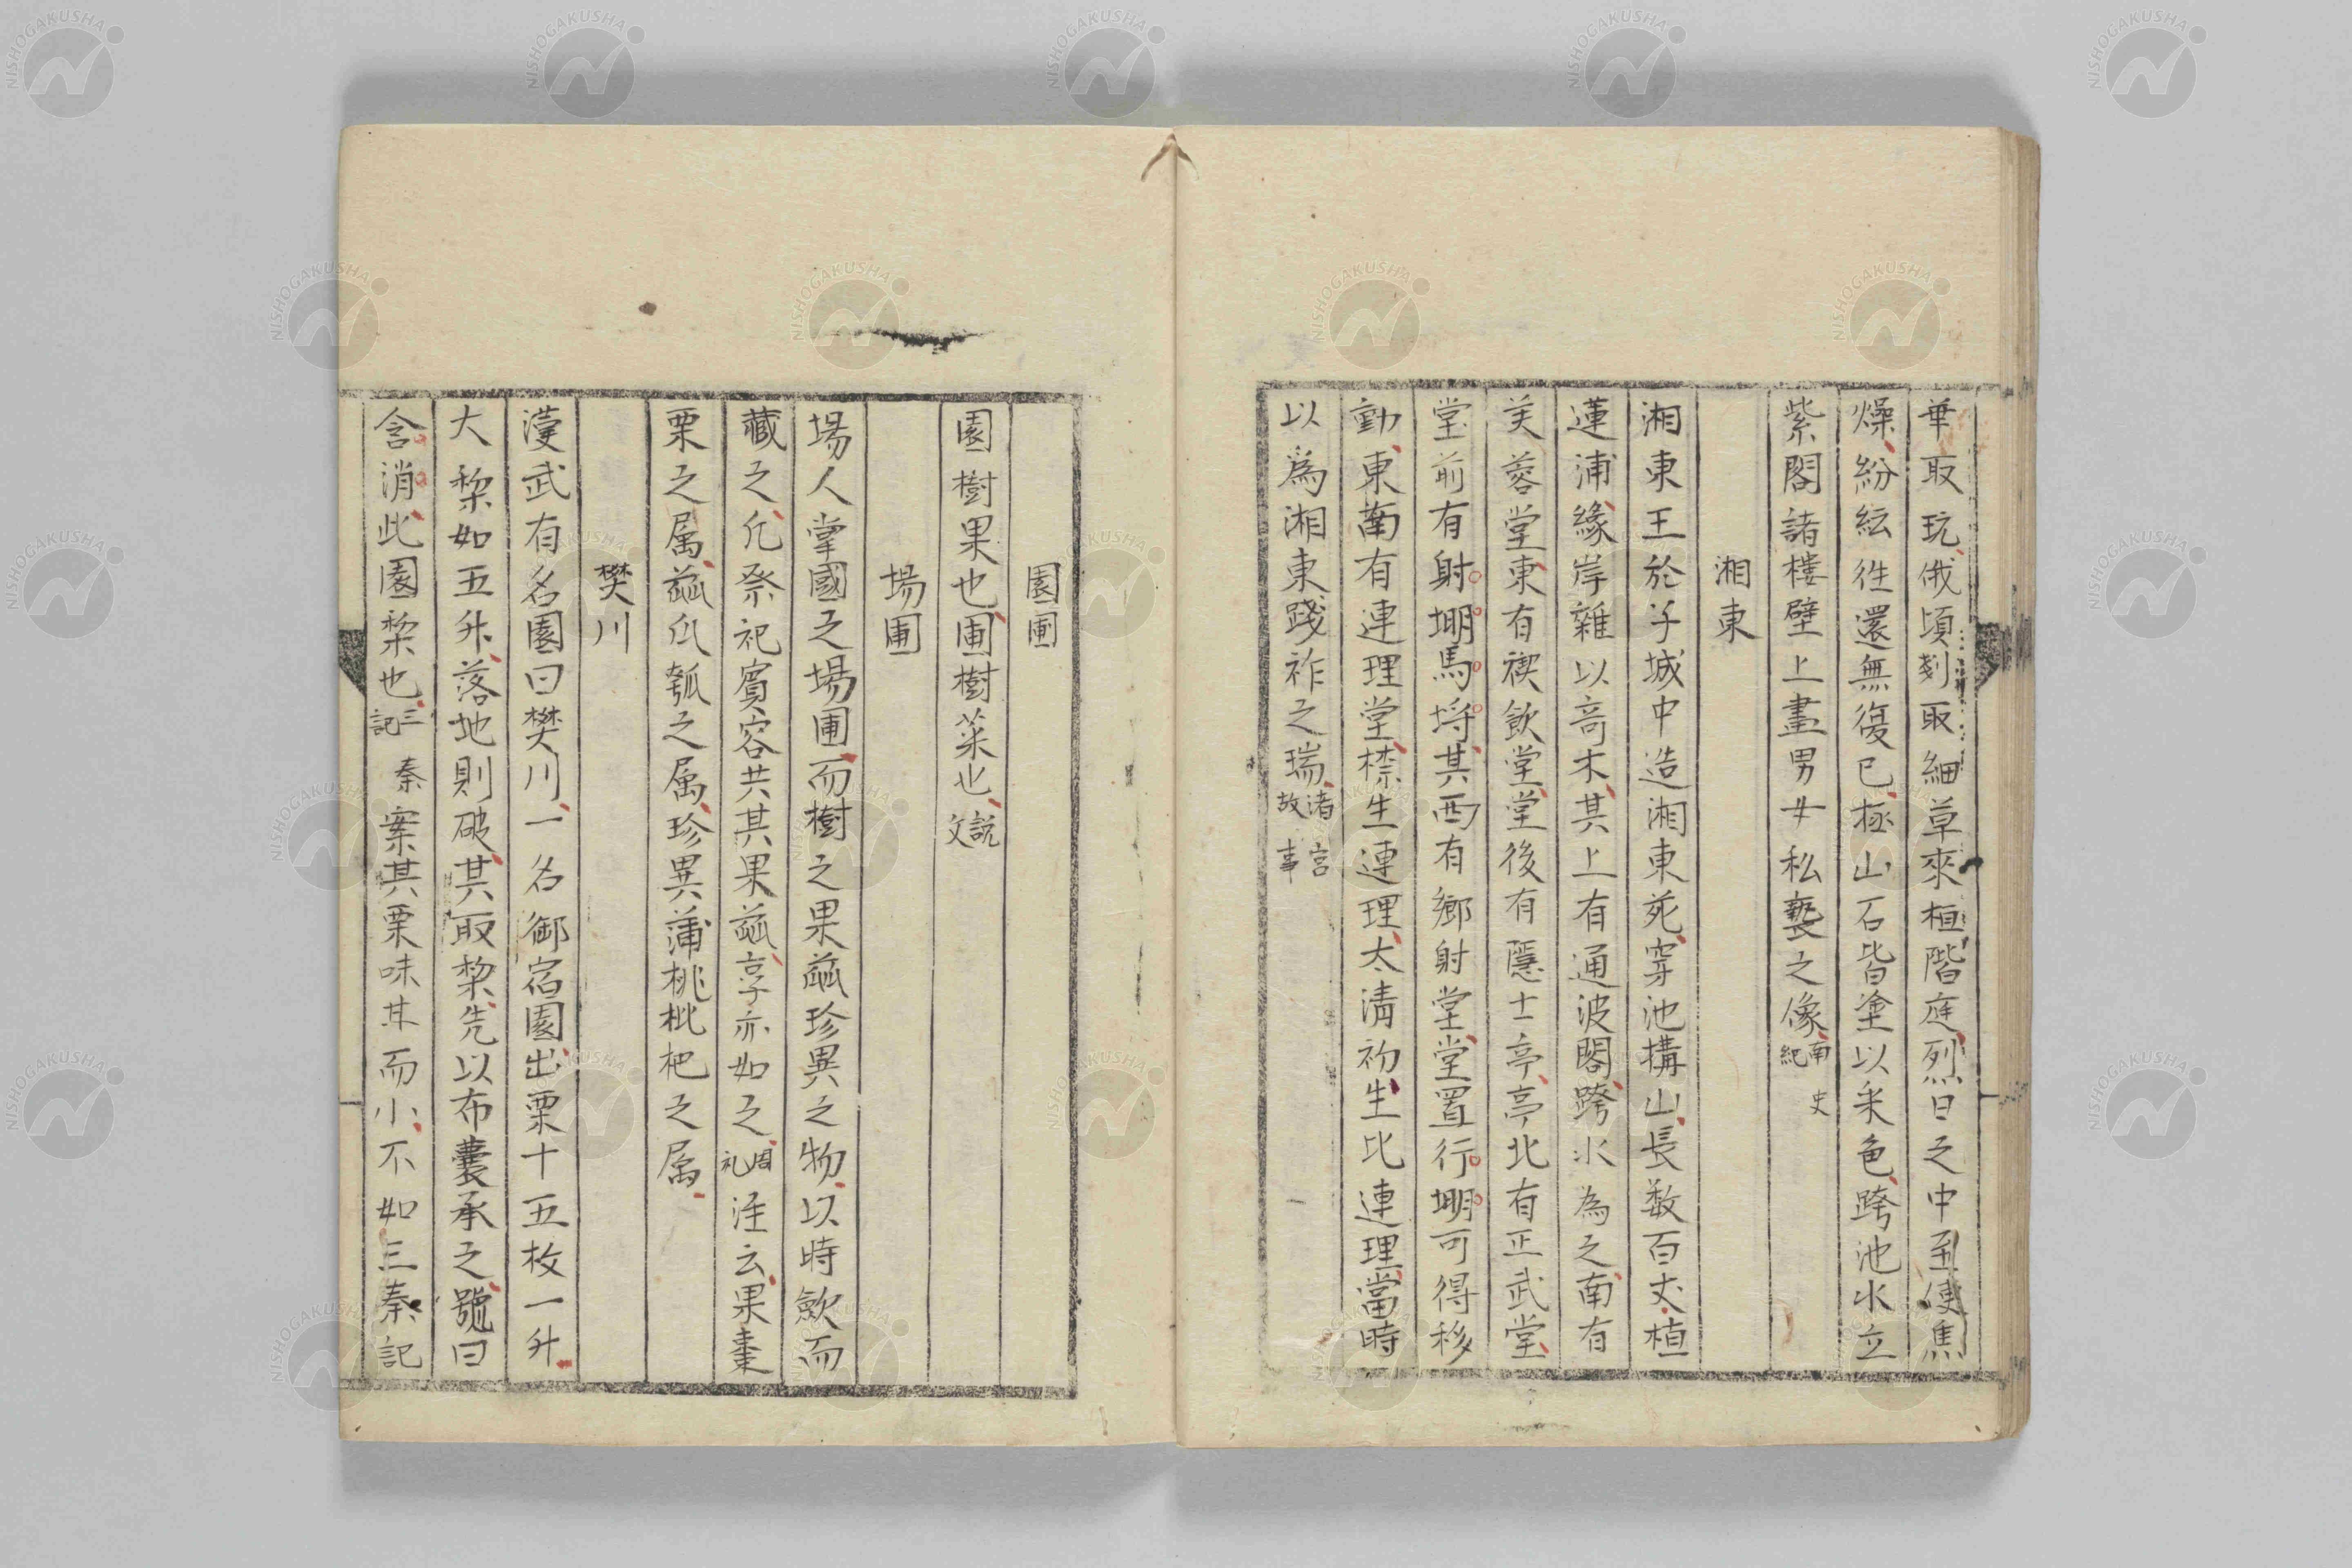 華取玩俄頃刻取細草來植階庭烈日之中至便焦
燥紛紜往還無復已極山石皆塗以采色跨池水立
紫閣諸樓壁上畫男女私褻之像南史紀
湘東
湘東王於子城中造湘東苑穿池搆山長数百丈植
蓮浦緣岸雜以竒木其上有通波閣跨水為之南有
芙蓉堂東有禊飲堂堂後有隱士亭亭北有正武堂
堂前有射堋馬埒其西有鄉射堂堂置行堋可得移
動東南有連理堂㮈生連理太清初生比連理當時
以爲湘東踐祚之瑞渚宮故事
園圃
園樹果也圃樹菜也説文
場圃
場人掌國之場圃而樹之果蓏珍異之物以時歛而
藏之凡祭祀賓容共其果蓏享亦如之周礼注云果棗
栗之属蓏瓜瓠之属珍異蒲桃枇杷之属
樊川
漢武有名園曰樊川一名御宿園出栗十五枚一升
大棃如五升落地則破其取棃先以布囊承之號曰
含消此園棃也三秦記案其栗味甘而小不如三秦記
NISHOGAKUSHA